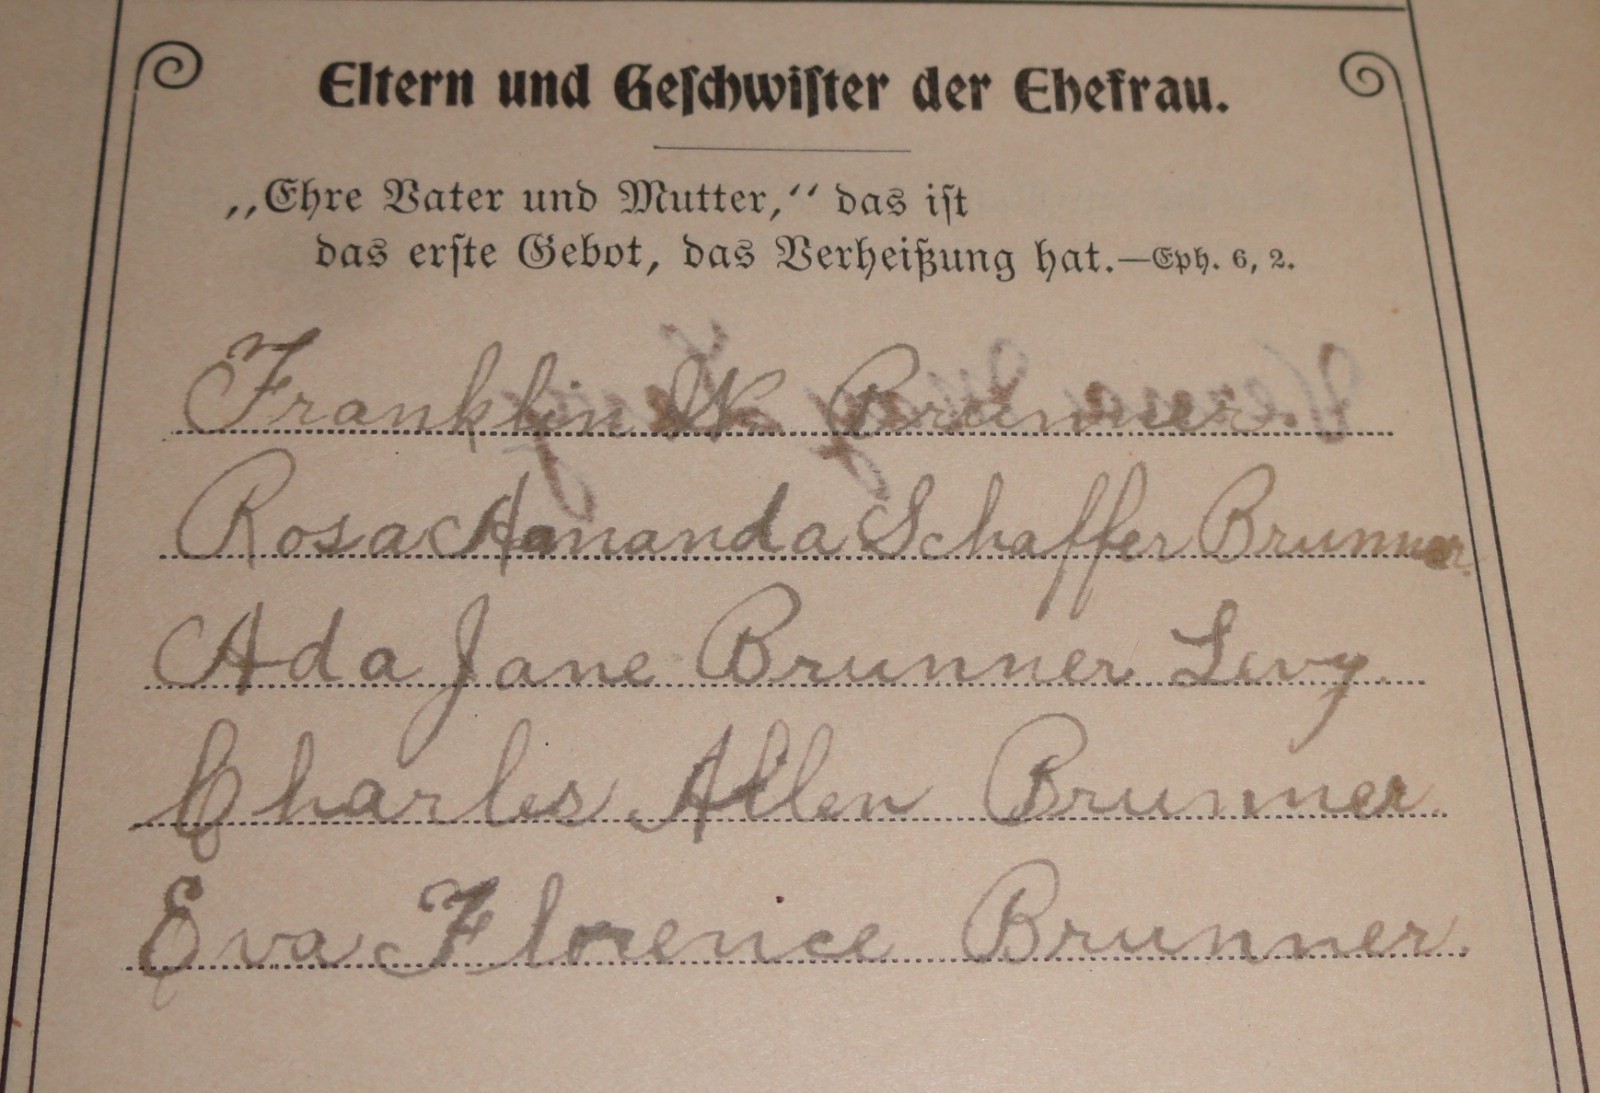 Eltern und Geschwister der Ehefrau.
„Ehre Vater und Mutter,“ das ist
das erste Gebot, das Verheißung hat.—Eph. 6, 2.
Franklin W Brunner.
Rosa Amanda Schaffer Brunner.
Ada Jane Brunner Levy.
Charles Allen Brunner.
Eva Florence Brunner.